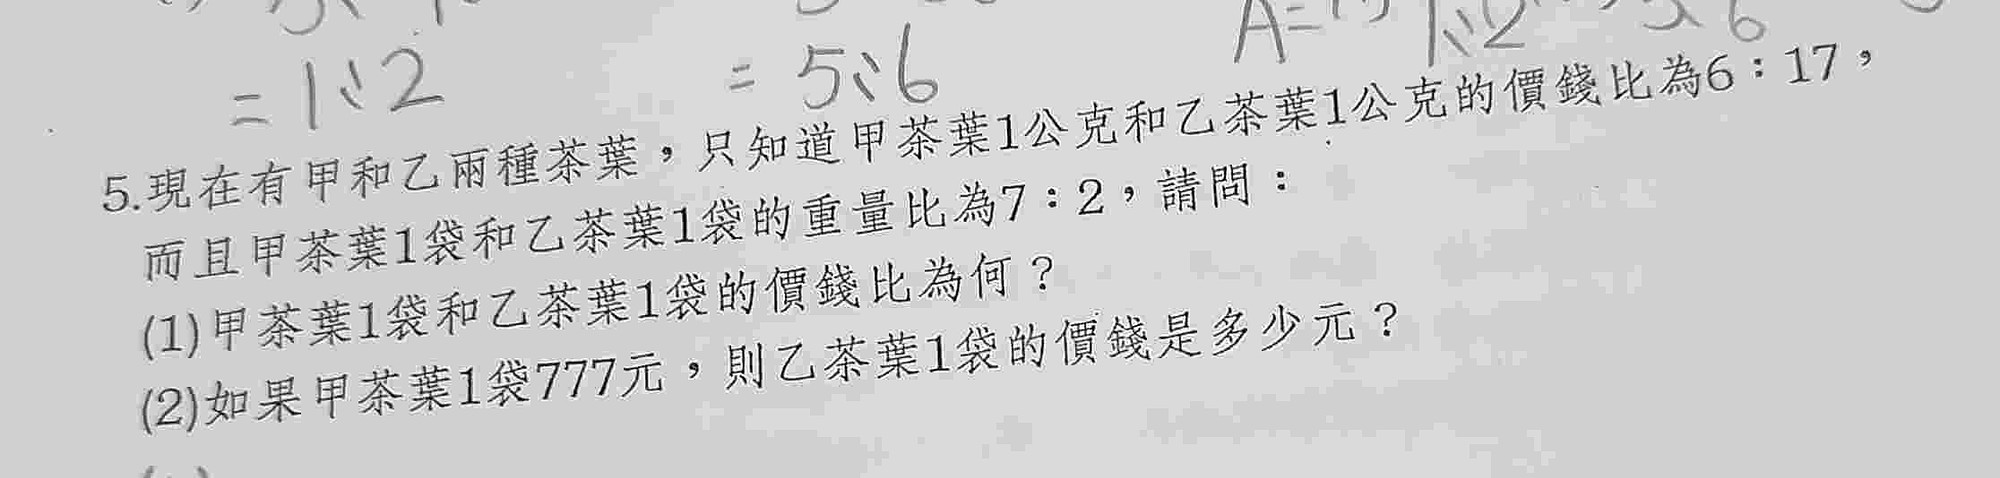 = 1:2
= 5:6
A=
1:2
5.現在有甲和乙兩種茶葉，只知道甲茶葉1公克和乙茶葉1公克的價錢比為6：17，
而且甲茶葉1袋和乙茶葉1袋的重量比為7：2，請問：
(1)甲茶葉1袋和乙茶葉1袋的價錢比為何？
(2)如果甲茶葉1袋777元，則乙茶葉1袋的價錢是多少元？